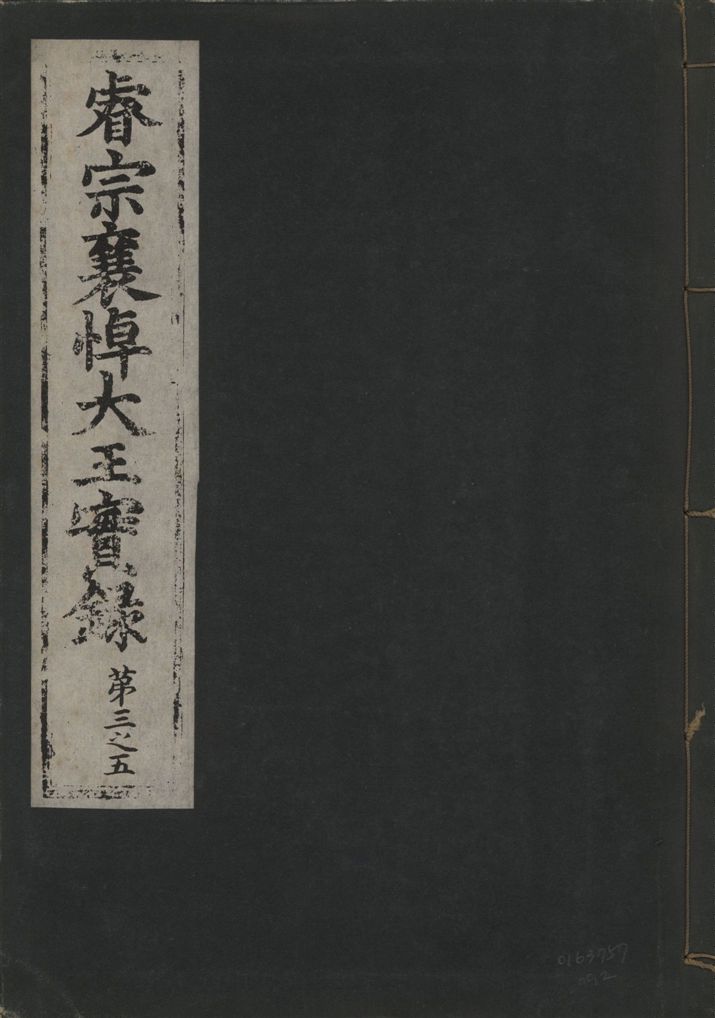 睿宗襄悼大王實錄
第三之五
0163757